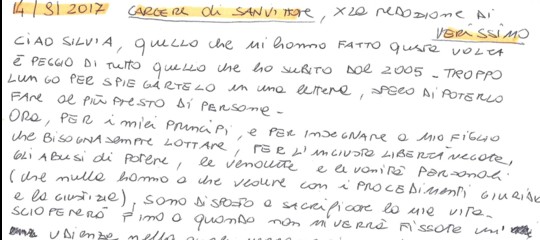 14/3/2017 CARCERE di SANVITTORE, X LA REDAZIONE DI
VERISSIMO
CIAO SILVIA, QUELLO CHE MI HANNO FATTO QUESTA VOLTA
È PEGGIO DI TUTTO QUELLO CHE HO SUBITO DAL 2005 - TROPPO
LUNGO PER SPIEGARTELO IN UNA LETTERA, SPERO DI POTERLO
FARE AL PIÙ PRESTO DI PERSONA -
ORA, PER I MIEI PRINCIPI, E PER INSEGNARE A MIO FIGLIO
CHE BISOGNA SEMPRE LOTTARE, PER L'INGIUSTA LIBERTÀ NEGATA,
GLI ABUSI di POTERE, LE VENDETTE E LE VANITÀ PERSONALI
(CHE NULLA HANNO A CHE VEDERE CON I PROCEDIMENTI GIURIDICI
E LA GIUSTIZIA), SONO DISPOSTO A SACRIFICARE LA MIA VITA -
SCIOPERERÒ FINO A QUANDO NON MI VERRÀ FISSATA
UDIENZA NELLA